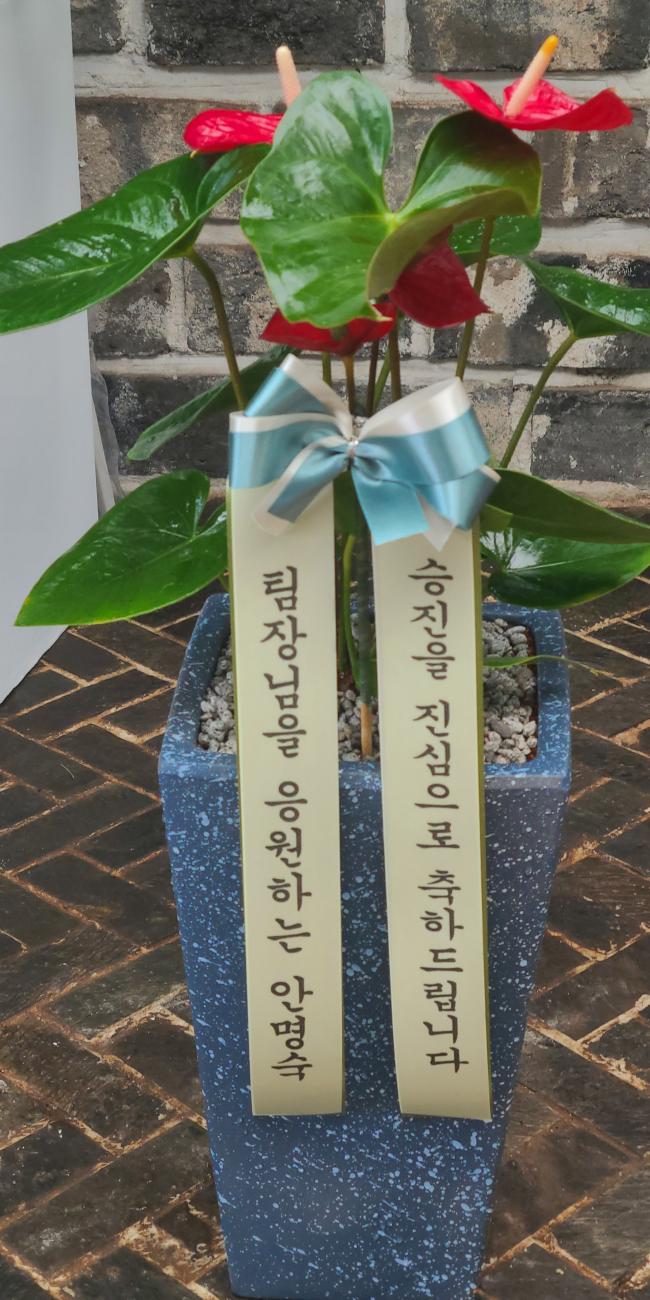 승진을 진심으로 축하드립니다
팀장님을 응원하는 안명숙